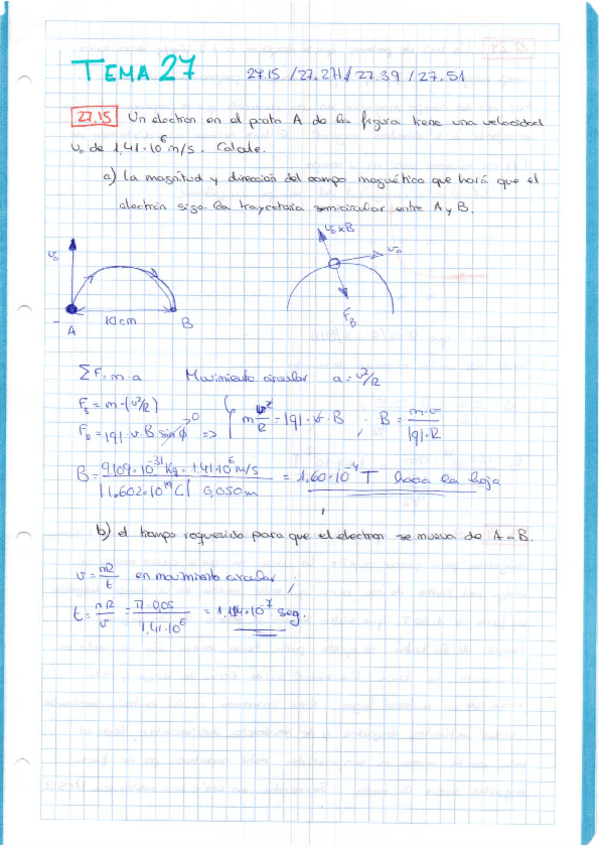 TEMA 27
27.15 / 27.27 / 27.39 / 27.51
27.15 Un electron en el punto A de la figura tiene una velocidad
v₀ de 1,41·10⁶ m/s. Calcule.
a) La magnitud y dirección del campo magnético que hará que el
electrón siga la trayectoria semicircular entre A y B.
v₀
A
10cm
B
v₀xB
v₀
F_B
ΣF=m·a Movimiento circular a=v²/R
F_B=m·(v²/R)
F_B=|q|·v·B sinϕ => m v²/R = |q|·v·B ; B= m·v / |q|·R
B= 9,109·10⁻³¹ Kg · 1,41·10⁶ m/s / |1,602·10⁻¹⁹ C| 0,050m = 1,60·10⁻⁴ T hacia la hoja
b) el tiempo requerido para que el electron se mueva de A a B.
v= πR/t en movimiento circular ;
t= πR/v = π·0,05 / 1,41·10⁶ = 1,114·10⁻⁷ seg.